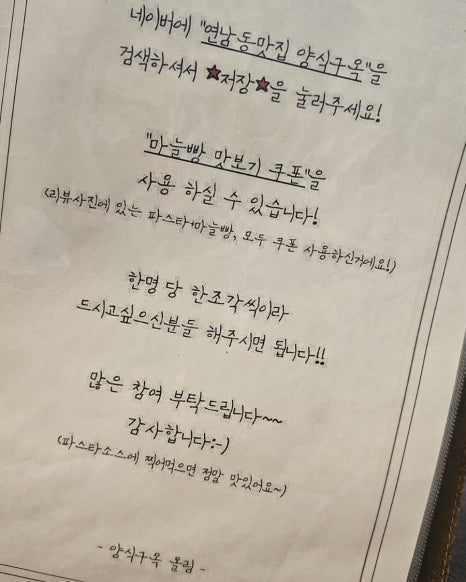 네이버에 "연남동맛집 양식구옥"을
검색하셔서 ★저장★을 눌러주세요!
"마늘빵 맛보기 쿠폰"을
사용 하실 수 있습니다!
(리뷰사진에 있는 파스타+마늘빵, 모두 쿠폰 사용하신거에요!)
한명 당 한조각씩이라
드시고싶으신분들 해주시면 됩니다!!
많은 참여 부탁드립니다~~
감사합니다:-)
(파스타소스에 찍어먹으면 정말 맛있어요~)
- 양식구옥 올림 -